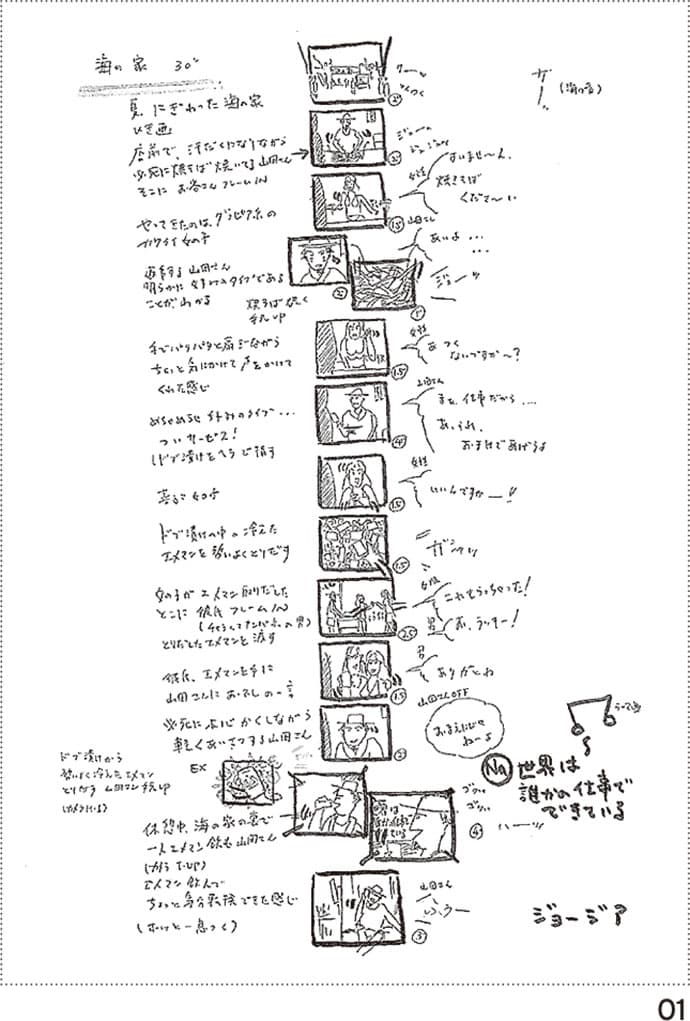 海の家 30"
夏 にぎわった海の家
ひき画
店前で、汗だくになりながら
必死に焼そば焼いてる山田さん
そこに お客さんフレームIN
やってきたのは、グラビア系の
カワイイ女の子
山田さん
明らかに タイプである
ことがわかる
焼そば焼く
手元UP
手でパタパタと扇ぎながら
ちょっと気にかけて声をかけて
くれた感じ
めちゃめちゃ 好みのタイプ...
ついサービス!
ドブ漬けを
喜ぶ女の子
ドブ漬けの中の冷えた
エメマンを勢いよくとりだす
女の子がエメマン取りだした
とこに 彼氏フレームIN
とりだしたエメマンを渡す
彼氏、エメマンを手に
山田さんに
必死に
軽くあいさつする山田さん
ドブ漬けから
勢いよく冷えたエメマン
とりだす 山田さん手元UP
EX
休憩中、海の家の裏で
一人エメマン飲む山田さん
エメマン飲んで
ちょっと気分転換できた感じ
(ホッと一息つく)
ザー
(海の音)
ジュー
女性
すいませ〜ん、
焼きそば
くださ〜い
山田さん
あいよ...
ジューッ
女性
あつく
ないですか〜?
山田さん
まぁ、仕事だから....
あ、これ、
おまけであげるよ
女性
いいんですかー!!
女性
これもらっちゃった!
男
お、ラッキー!
男
ありがとね
山田さんOFF
おまえにじゃ
ねーよ
Na
世界は
誰かの仕事で
できている
山田さん
ジョージア
01